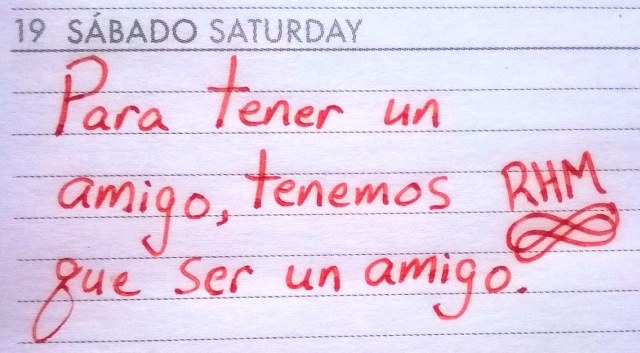 19 SÁBADO SATURDAY
Para tener un
amigo, tenemos RHM
que ser un amigo.